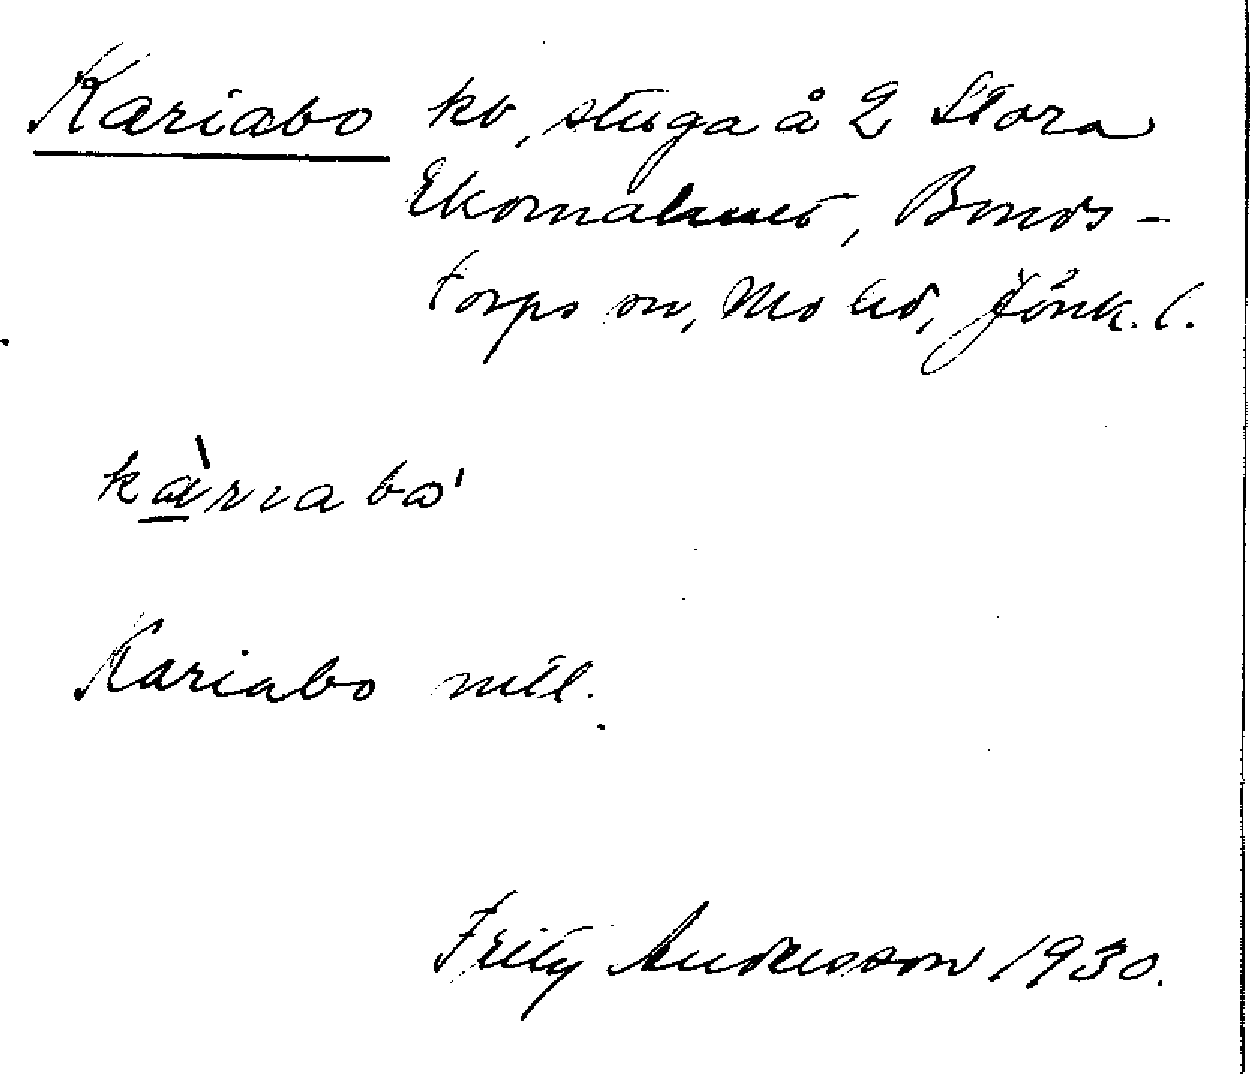 Kariabo kb, stuga å 2 Stora
Ekornahult, Bonds-
torps sn, Mo hd, Jönk. l.
kàriabo'
Kariabo mtl.
Fritz Andersson 1930.